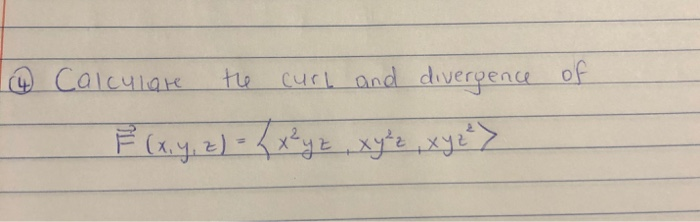 ④ Calculate the curl and divergence of
F⃗ (x,y,z) = ⟨x²yz, xy²z, xyz²⟩